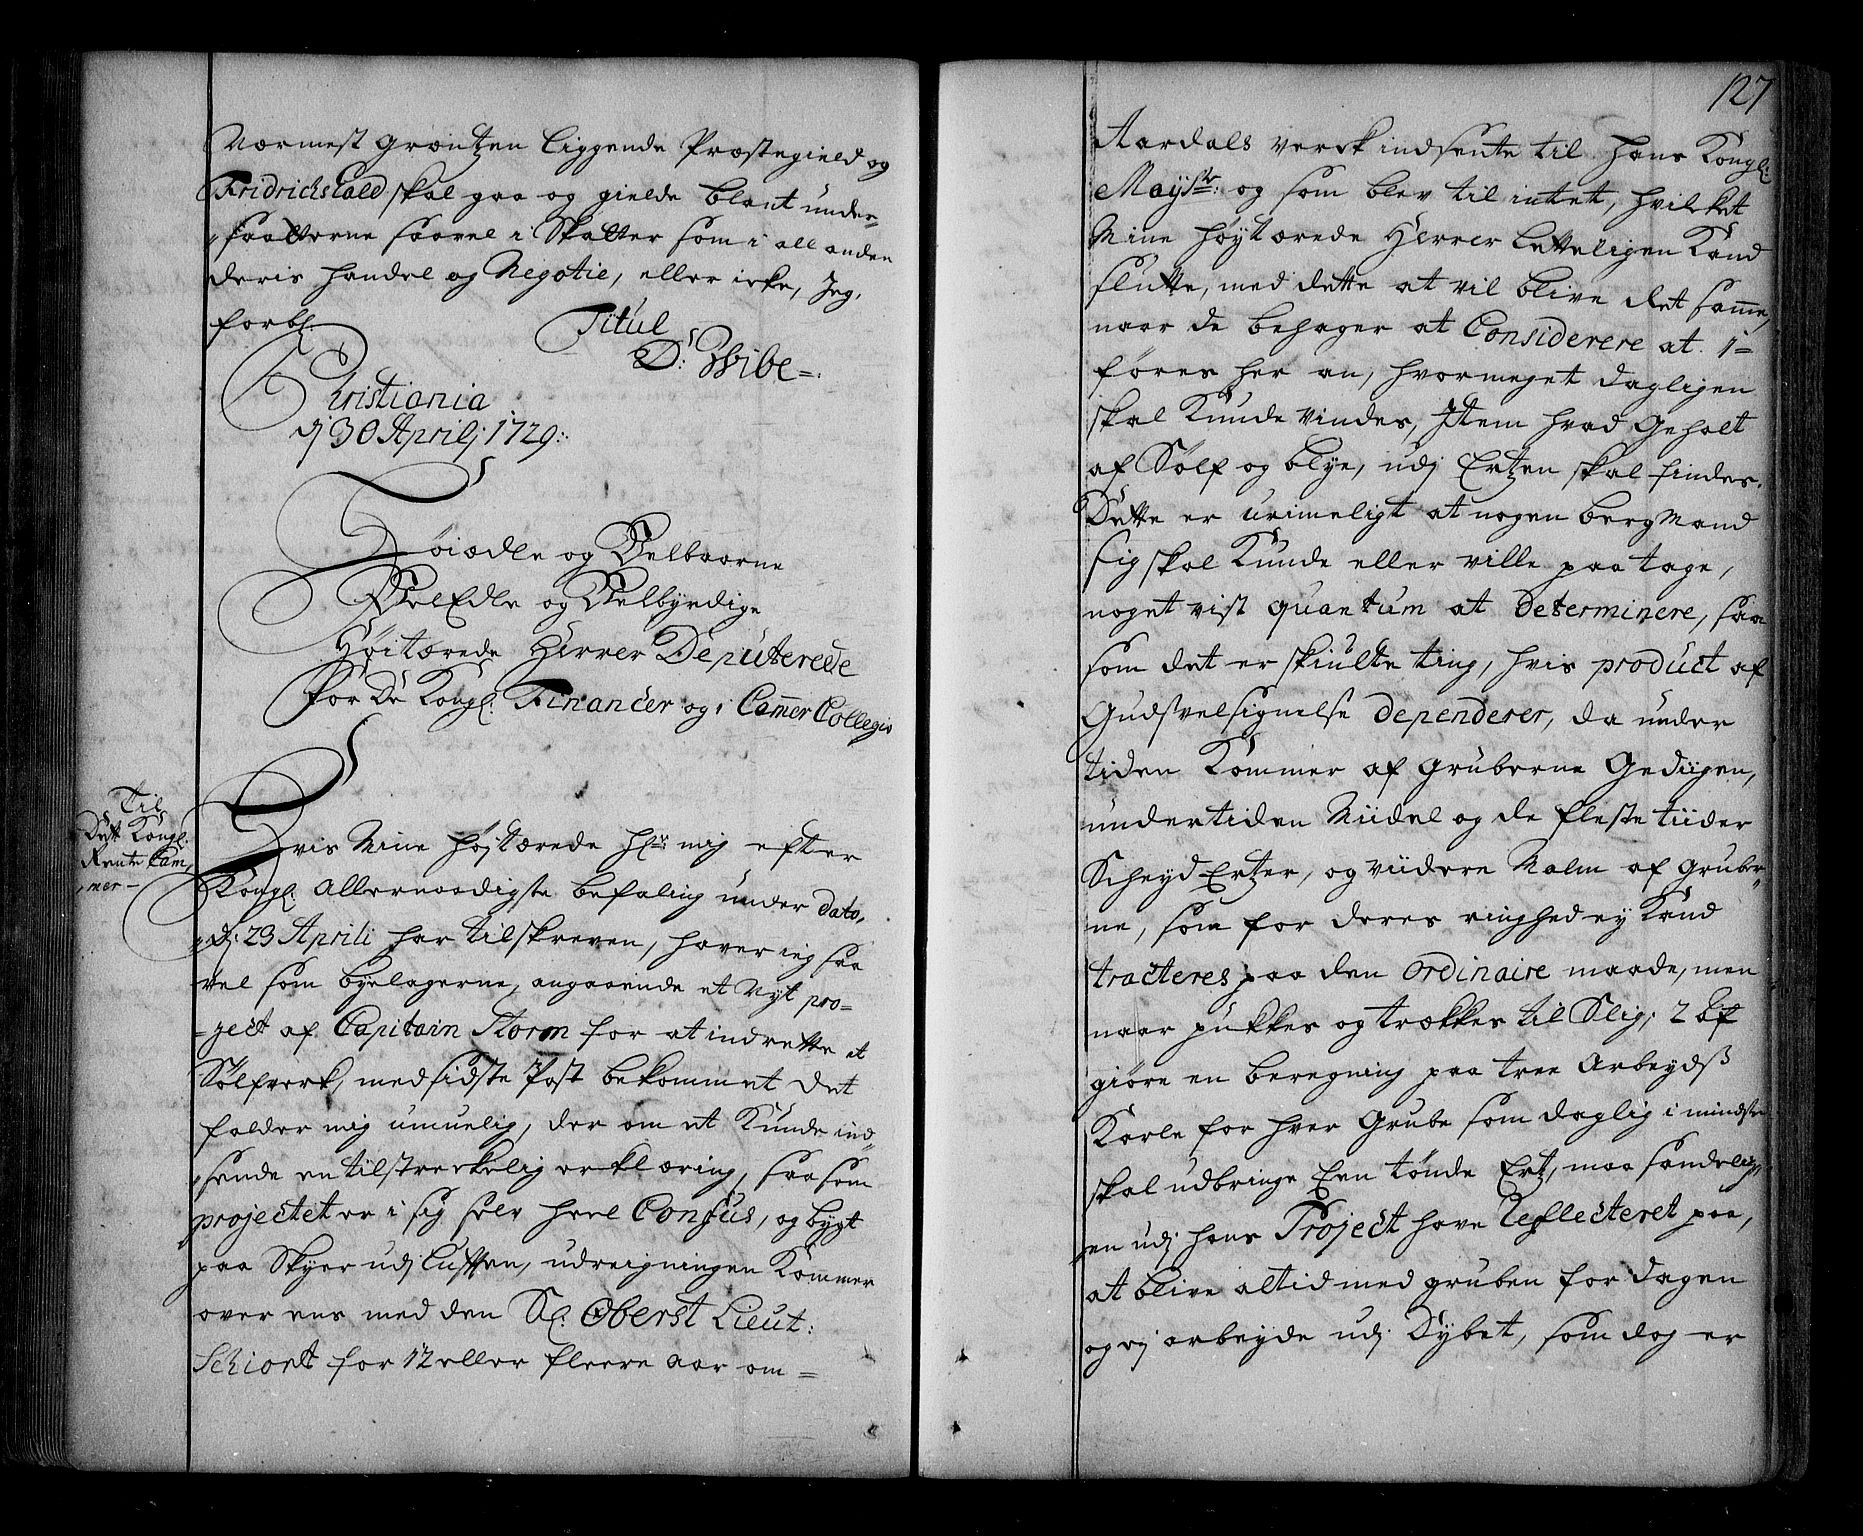 Nærmest Græntzen liggende Præstegield og
Fridrichshald skal gaa og gielde blant under-
saatterne saavel i Skatter som i all anden
deris handel og Negotie, eller icke, Jeg,
forbl:
Titul
D: Wibe
Christiania
dj 30 Aprilj 1729:
Høiædle og Velbaarne
VelEdle og Velbyrdige
Høitærede Herrer Deputerede
for De Kongl: Financer og i Camer Collegio
Til
Dett Kongl:
Rente Cam-
mer
Hvis Mine højtærede Hrr: mig efter
Kongl: Allernaadigste befaling under dato,
d: 23 Aprili har tilskreven, haver ieg saa
vel som byelagerne, angaaende et Nyt pro-
ject af Capitain Storm for at indrette et
Sølfverk, med sidste Post bekommet det
falder mig umuelig, der om at Kunde ind-
sende en tilstrækelig erklæring, saasom
projectet er i sig selv heel Confus, og bygt
paa Skyer udj Luften, udreigningen Kommer
over ens med den Sl: Oberst Lieut:
Schiort for 12 eller fleere aar om-
127
Aardals verck indsente til hans Kongl:
Mayst: og som blev til intet, hvilket
Mine høytærede Herrer letteligen Kand
slutte, med dette at vil blive det same,
naar de behager at Considerere at i-
føres her an, hvormeget dagligen
skal Kunde vindes, Item hvad Geholt
af Sølf og blye, udj Ertzen skal findes.
Dette er urimeligt at nogen bergMand
sig skal Kunde eller ville paa tage,
noget vist quantum at determinere, saa
som det er skiulte ting, hvis product af
Guds velsignelse dependerer, da under
tiden Kommer af Gruberne Gediigen,
undertiden Middel og de fleste tiider
ScheydErtzer, og viidere Malm af Gruber-
ne, som for deres ringhed ey Kand
tracteres paa den ordinaire maade, men
naar pukkes og trækkes til Slig; 2
giøre en beregning paa tree Arbeydß
Karle for hver Grube som daglig i mindste
skal udbringe Een tønde Ertz, maa sandelig
en udj hans Project have Reflecteret paa,
at blive altid med gruben for dagen
og ej arbeyde udj Dybet, som dog er